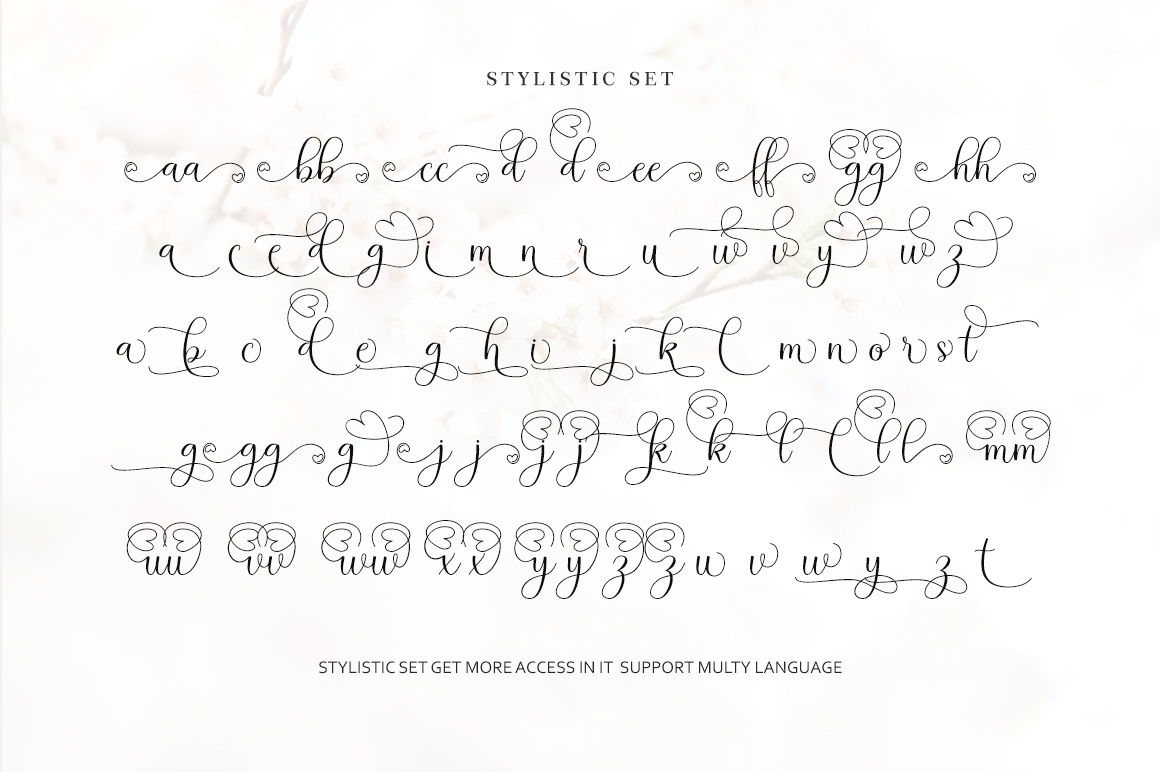 STYLISTIC SET
aa bb cc d d ee ff gg hh
a c e d g i m n r u w v y w z
a b c d e g h i j k l m n o r s t
g gg g j j j j k k l l l l mm
uu vv ww xx yy z z u v w y z t
STYLISTIC SET GET MORE ACCESS IN IT SUPPORT MULTY LANGUAGE